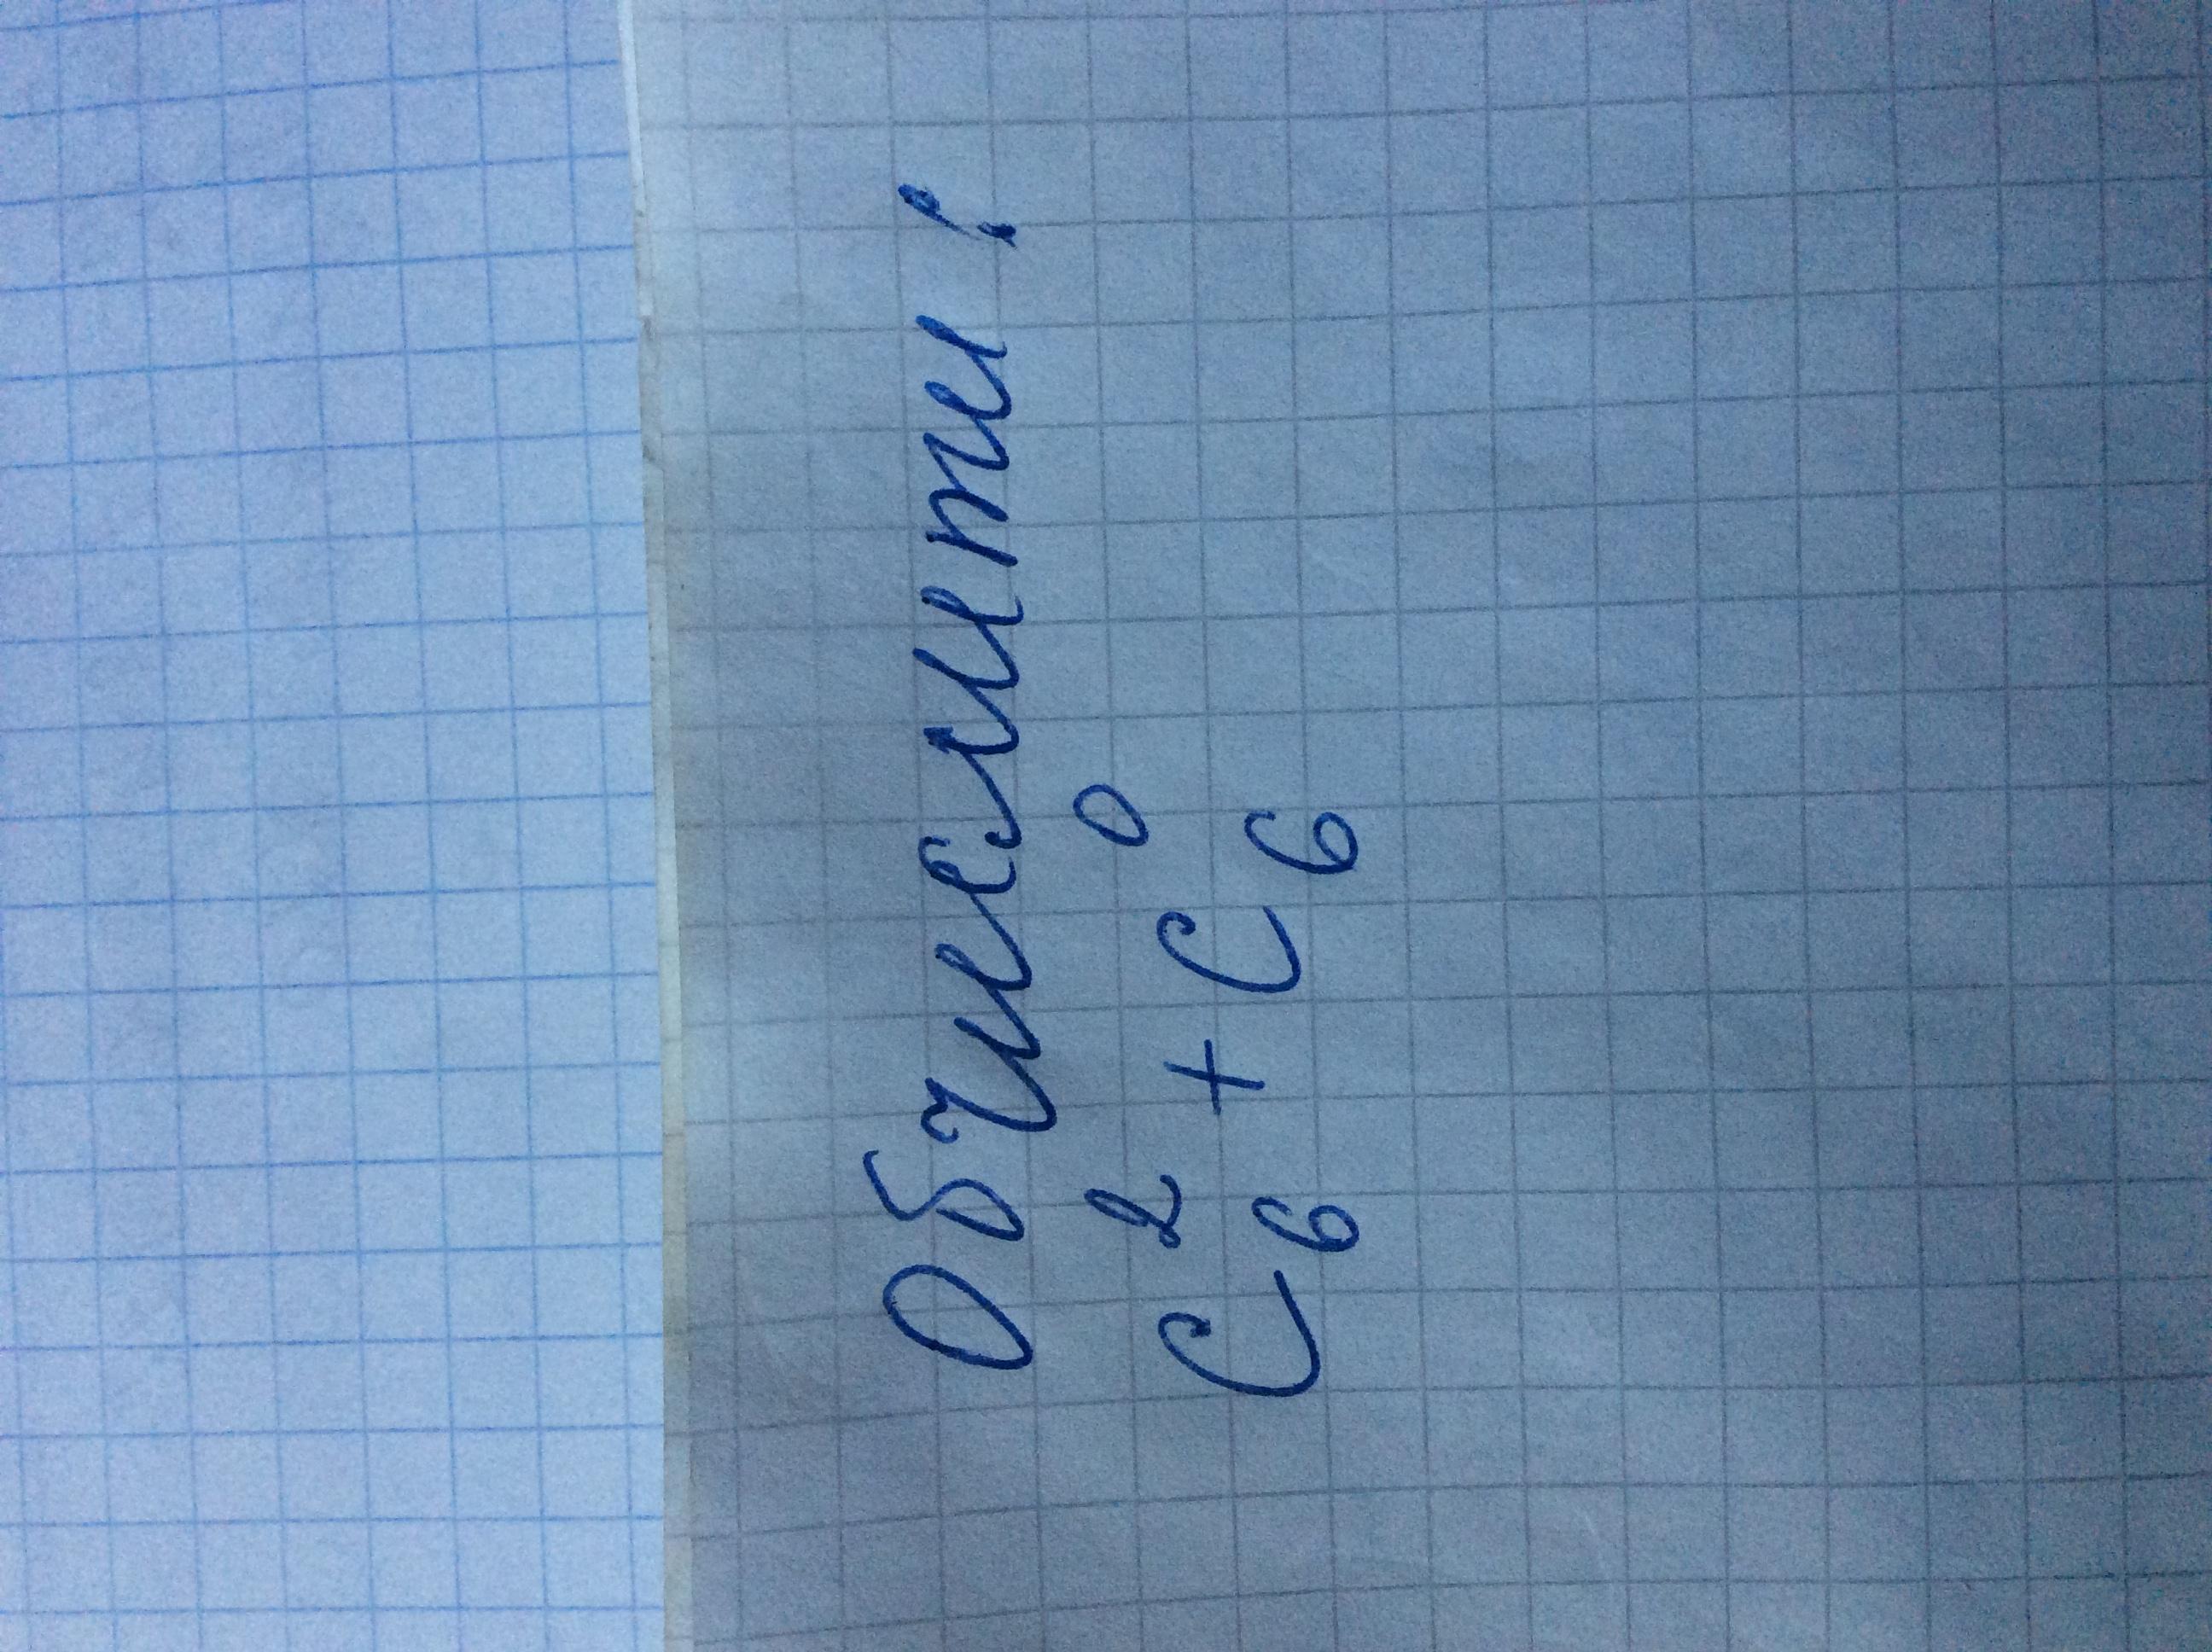 Обчислити !
C₆² + C₆⁰